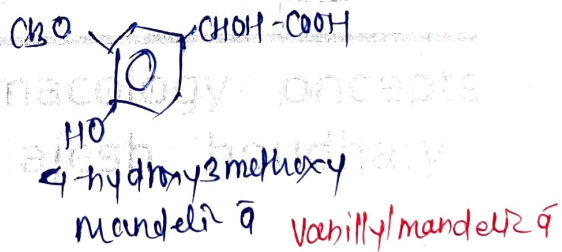 CH3O CHOH-COOH
nacology concepts
HO
4-hydroxy3methoxy
mandelic a Vanillylmandelic a